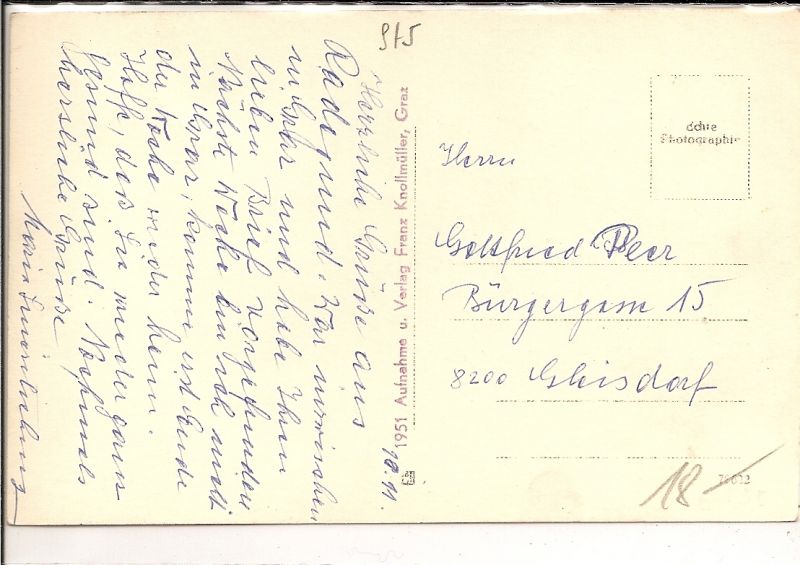 St5
Herzliche Grüße aus
Radegund. War inzwischen
in Graz und habe Ihren
lieben Brief vorgefunden
Nächste Woche bin ich nicht
in Graz, komme erst Ende
der Woche wieder heim.
Hoffe, daß Sie wieder ganz
gesund sind. Nochmals
herzliche Grüße
Maria
18.11.
1951 Aufnahme u. Verlag Franz Knollmüller, Graz
Echte
Photographie
Herrn
Gottfried Peer
Bürgergasse 15
8200 Gleisdorf
18